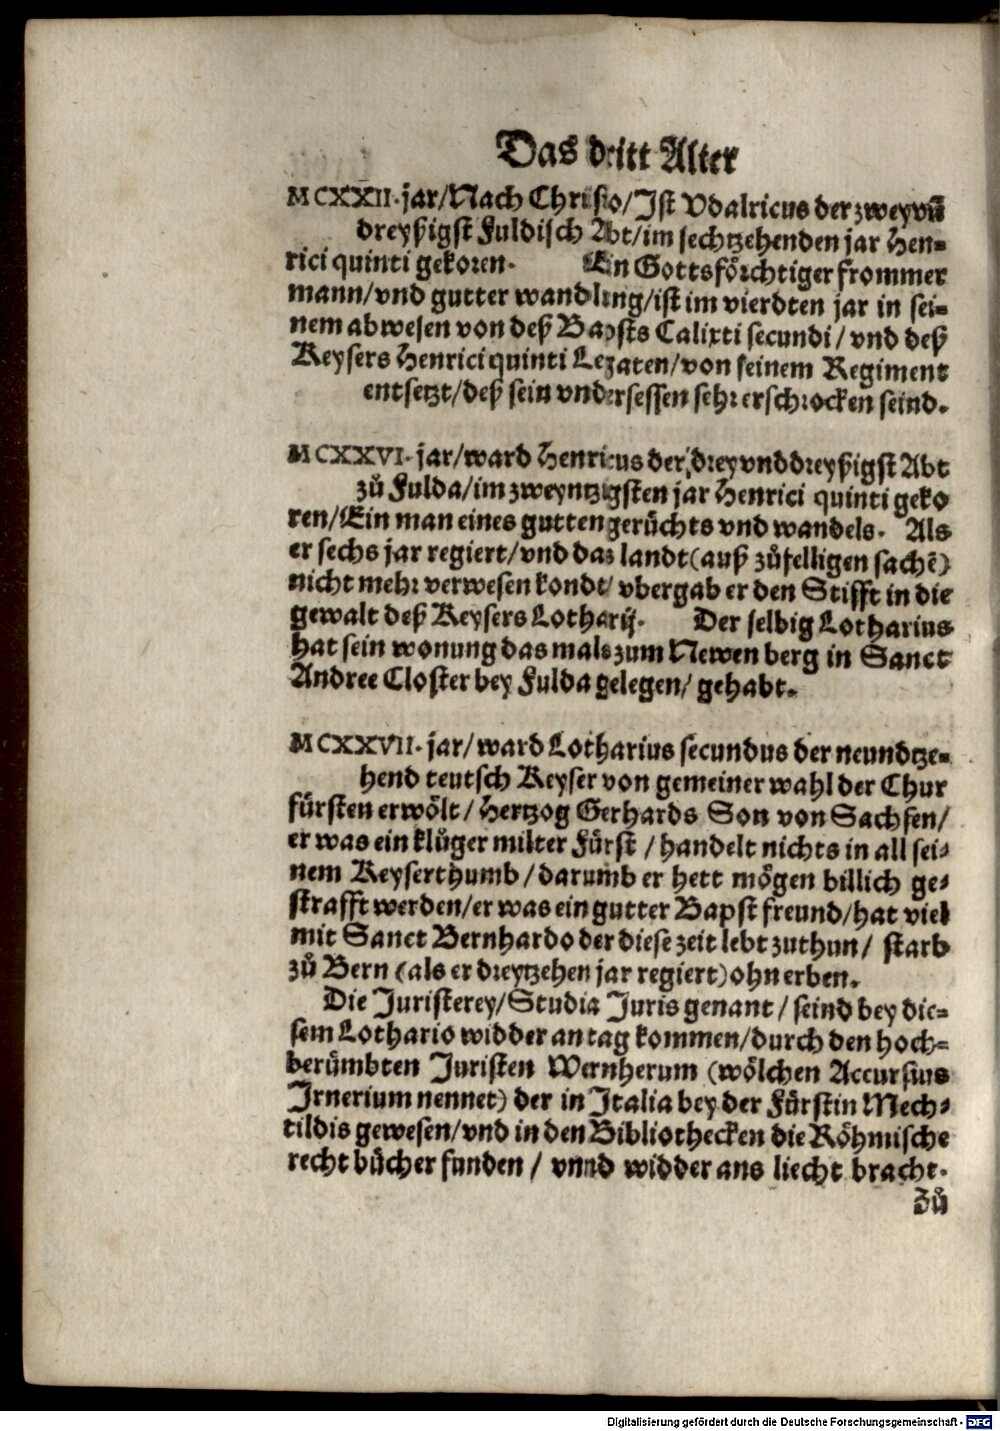 Das dritt Alter
MCXXII. jar/Nach Christo/Ist Vdalricus der zweyvñ
dreyßigst Fuldisch Abt/im sechtzehenden jar Hen-
rici quinti gekoren. Ein Gottsförchtiger frommer
mann/vnd gutter wandlung/ist im vierdten jar in sei-
nem abwesen von deß Bapsts Calixti secundi/vnd deß
Keysers Henrici quinti Legaten/von seinem Regiment
entsetzt/deß sein vndersessen sehr erschrocken seind.
MCXXVI. jar/ward Henricus der dreyvnddreyßigst Abt
zů Fulda/im zweyntzigsten jar Henrici quinti geko
ren/Ein man eines gutten gerüchts vnd wandels. Als
er sechs jar regiert/vnd das landt(auß zůfelligen sachẽ)
nicht mehr verwesen kondt/vbergab er den Stifft in die
gewalt deß Keysers Lotharij. Der selbig Lotharius
hat sein wonung das mals zum Newen berg in Sanct
Andree Closter bey Fulda gelegen/gehabt.
MCXXVII. jar/ward Lotharius secundus der neundtze-
hend teutsch Keyser von gemeiner wahl der Chur
fürsten erwölt/Hertzog Gerhards Son von Sachsen/
er was ein klůger milter Fürst/handelt nichts in all sei-
nem Keyserthumb/darumb er hett mögen billich ge-
strafft werden/er was ein gutter Bapst freund/hat viel
mit Sanct Bernhardo der diese zeit lebt zuthun/starb
zů Bern (als er dreytzehen jar regiert)ohn erben.
Die Juristerey/Studia Juris genant/seind bey die-
sem Lothario widder an tag kommen/durch den hoch-
berümbten Juristen Wernherum (wölchen Accursius
Irnerium nennet) der in Italia bey der Fürstin Mech-
tildis gewesen/vnd in den Bibliothecken die Röhmische
recht bücher funden/vnnd widder ans liecht bracht.
Zů
Digitalisierung gefördert durch die Deutsche Forschungsgemeinschaft - DFG